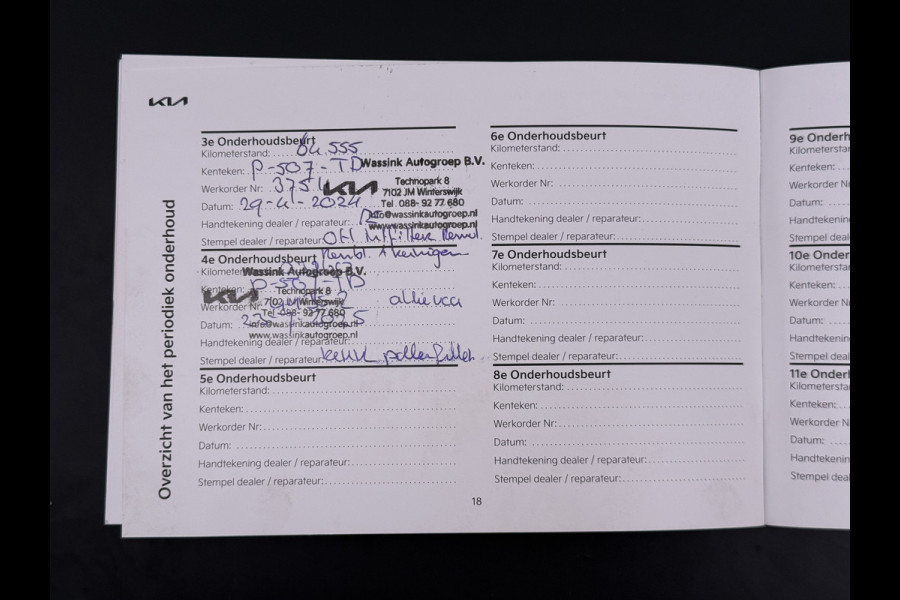 KIA
Overzicht van het periodiek onderhoud
3e Onderhoudsbeurt
Kilometerstand: 64.555
Kenteken: P-507-TD
Werkorder Nr: 3751
Datum: 29-4-2024
Handtekening dealer / reparateur:
Stempel dealer / reparateur:
Wassink Autogroep B.V.
KIA
Technopark 8
7102 JM Winterswijk
Tel. 088- 92 77 680
info@wassinkautogroep.nl
www.wassinkautogroep.nl
4e Onderhoudsbeurt
Kenteken:
Werkorder Nr:
Datum:
Handtekening dealer / reparateur:
Stempel dealer / reparateur:
Wassink Autogroep B.V.
KIA
Technopark 8
7102 JM Winterswijk
Tel. 088- 92 77 680
info@wassinkautogroep.nl
www.wassinkautogroep.nl
5e Onderhoudsbeurt
Kilometerstand:
Kenteken:
Werkorder Nr:
Datum:
Handtekening dealer / reparateur:
Stempel dealer / reparateur:
6e Onderhoudsbeurt
Kilometerstand:
Kenteken:
Werkorder Nr:
Datum:
Handtekening dealer / reparateur:
Stempel dealer / reparateur:
7e Onderhoudsbeurt
Kilometerstand:
Kenteken:
Werkorder Nr:
Datum:
Handtekening dealer / reparateur:
Stempel dealer / reparateur:
8e Onderhoudsbeurt
Kilometerstand:
Kenteken:
Werkorder Nr:
Datum:
Handtekening dealer / reparateur:
Stempel dealer / reparateur:
18
9e Onderh
Kilometersta
Kenteken:
Werkorder N
Datum:
Handtekenin
Stempel deal
10e Onder
Kilometersta
Kenteken:
Werkorder N
Datum:
Handtekenin
Stempel deal
11e Onderl
Kilometersta
Kenteken:
Werkorder N
Datum:
Handtekenin
Stempel deal